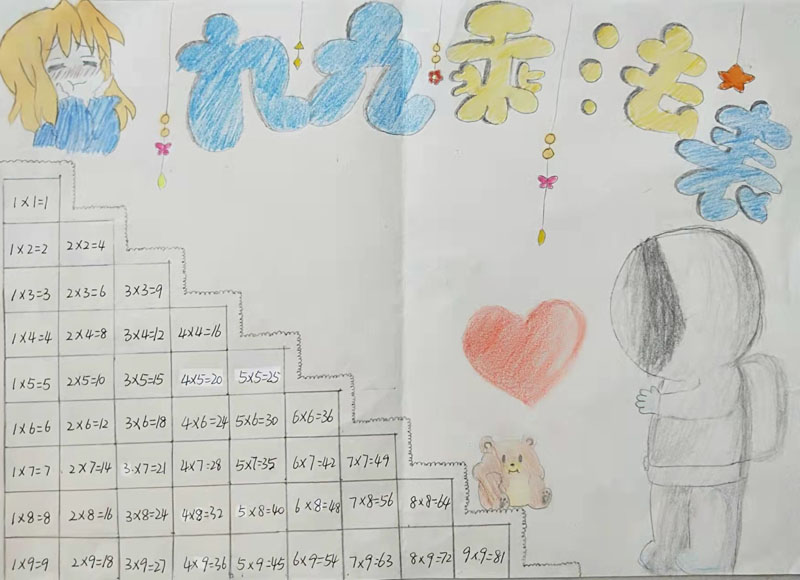 九九乘法表
1×1=1
1×2=2 2×2=4
1×3=3 2×3=6 3×3=9
1×4=4 2×4=8 3×4=12 4×4=16
1×5=5 2×5=10 3×5=15 4×5=20 5×5=25
1×6=6 2×6=12 3×6=18 4×6=24 5×6=30 6×6=36
1×7=7 2×7=14 3×7=21 4×7=28 5×7=35 6×7=42 7×7=49
1×8=8 2×8=16 3×8=24 4×8=32 5×8=40 6×8=48 7×8=56 8×8=64
1×9=9 2×9=18 3×9=27 4×9=36 5×9=45 6×9=54 7×9=63 8×9=72 9×9=81